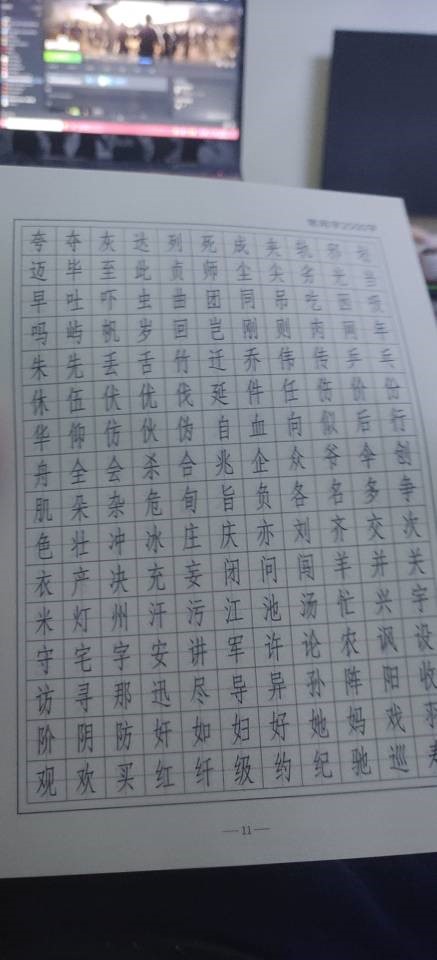 常用字2500字
夸夺灰达列死成夹轨邪划
迈毕至此贞师尘尖劣光当
早吐吓虫曲团同吊吃因吸
吗屿帆岁回岂刚则肉网年
朱先丢舌竹迁乔伟传乒乓
休伍伏优伐延件任伤价份
华仰仿伙伪自血向似后行
舟全会杀合兆企众爷伞创
肌朵杂危旬旨负各名多争
色壮冲冰庄庆亦刘齐交次
衣产决充妄闭问闯羊并关
米灯州汗污江池汤忙兴宇
守宅字安讲军许论农讽设
访寻那迅尽导异孙阵阳收
阶阴防奸如妇好她妈戏羽
观欢买红纤级约纪驰巡寿
— 11 —